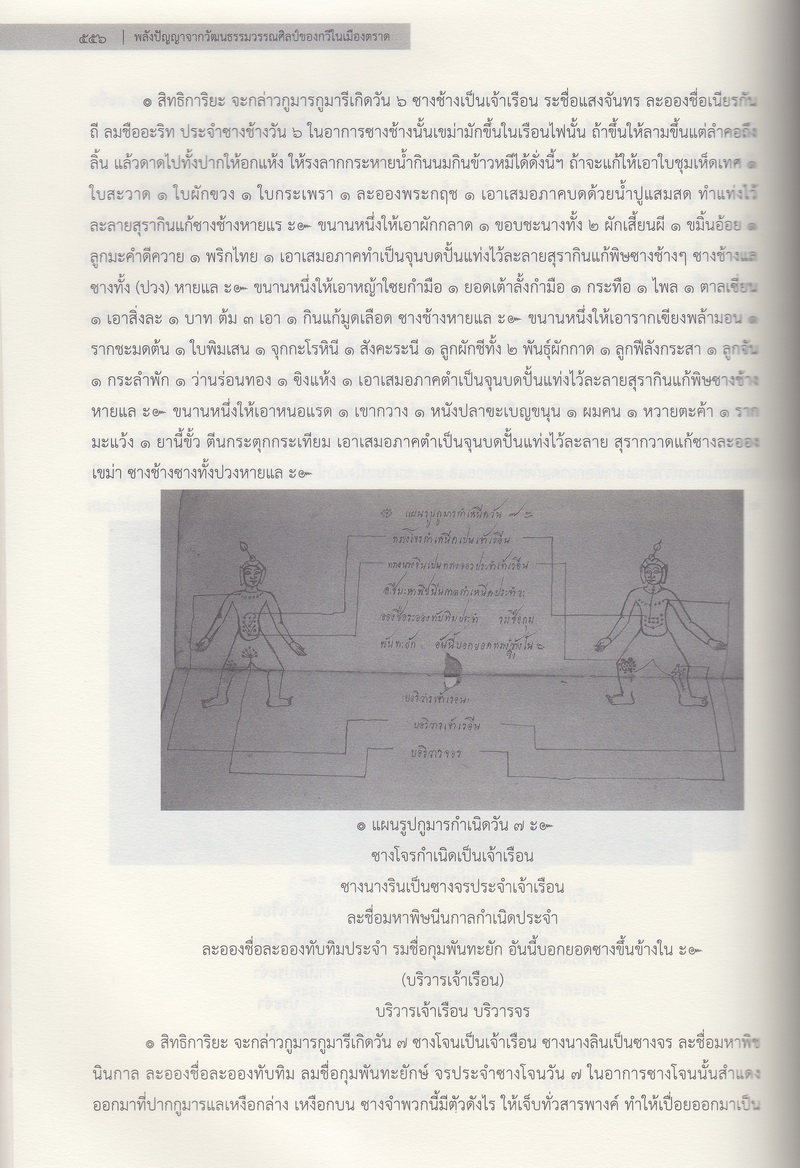 ๕๕๖ | พลังปัญญาจากวัฒนธรรมวรรณศิลป์ของกวีในเมืองตราด
๏ สิทธิการิยะ จะกล่าวกูมารกูมารีเกิดวัน ๖ ซางช้างเป็นเจ้าเรือน ระชื่อแสงจันทร ละอองชื่อเนียรกัน
ถี ลมชืออะริท ประจำซางช้างวัน ๖ ในอาการซางช้างนั้นเขม่ามักขึ้นในเรือนไฟนั้น ถ้าขึ้นให้ลามขึ้นแต่ลำคอถึง
ลิ้น แล้วดาดไปทั้งปากให้อกแห้ง ให้รงลากกระหายน้ำกินนมกินข้าวหมีได้ดั่งนี้ฯ ถ้าจะแก้ให้เอาใบชุมเห็ดเทศ ๑
ใบสะวาด ๑ ใบผักขวง ๑ ใบกระเพรา ๑ ละอองพระกฤช ๑ เอาเสมอภาคบดด้วยน้ำปูแสมสด ทำแท่งไว้
ละลายสุรากินแก้ซางช้างหายแร ะ๛ ขนานหนึ่งให้เอาผักกลาด ๑ ขอบชะนางทั้ง ๒ ผักเสี้ยนผี ๑ ขมิ้นอ้อย ๑
ลูกมะคำดีควาย ๑ พริกไทย ๑ เอาเสมอภาคทำเป็นจุนบดปั้นแท่งไว้ละลายสุรากินแก้พิษซางช้างๆ ซางช้างแล
ซางทั้ง (ปวง) หายแล ะ๛ ขนานหนึ่งให้เอาหญ้าไซยกำมือ ๑ ยอดเต้าลั้งกำมือ ๑ กระทือ ๑ ไพล ๑ ตาลเซียน
๑ เอาสิ่งละ ๑ บาท ต้ม ๓ เอา ๑ กินแก้มูดเลือด ซางช้างหายแล ะ๛ ขนานหนึ่งให้เอารากเขียงพล้ามอน ๑
รากชะมดต้น ๑ ใบพิมเสน ๑ จุกกะโรหินี ๑ สังคะระนี ๑ ลูกผักชีทั้ง ๒ พันธุ์ผักกาด ๑ ลูกฟีลังกระสา ๑ ลูกจัน
๑ กระลำพัก ๑ ว่านร่อนทอง ๑ ขิงแห้ง ๑ เอาเสมอภาคตำเป็นจุนบดปั้นแท่งไว้ละลายสุรากินแก้พิษซางช้าง
หายแล ะ๛ ขนานหนึ่งให้เอาหนอแรด ๑ เขากวาง ๑ หนังปลาซะเบญขนุน ๑ ผมคน ๑ หวายตะค้า ๑ ราก
มะแว้ง ๑ ยานี้ขั้ว ตีนกระตุกกระเทียม เอาเสมอภาคตำเป็นจุนบดปั้นแท่งไว้ละลาย สุรากวาดแก้ซางละออง
เขม่า ซางช้างซางทั้งปวงหายแล ะ๛
แผนรูปกูมารกำเนิดวัน ๗ ะ
บอริวารเจ้าเรือน
บอริวารเจ้าเรือน
บอริวารจอร
๏ แผนรูปกูมารกำเนิดวัน ๗ ะ๛
ซางโจรกำเนิดเป็นเจ้าเรือน
ซางนางรินเป็นซางจรประจำเจ้าเรือน
ละชื่อมหาพิษนีนกาลกำเนิดประจำ
ละอองชื่อละอองทับทิมประจำ รมชื่อกุมพันทะยัก อันนี้บอกยอดซางขึ้นข้างใน ะ๛
(บริวารเจ้าเรือน)
บริวารเจ้าเรือน บริวารจร
๏ สิทธิการิยะ จะกล่าวกูมารกูมารีเกิดวัน ๗ ซางโจนเป็นเจ้าเรือน ซางนางลินเป็นซางจร ละชื่อมหาพิช
นินกาล ละอองชื่อละอองทับทิม ลมชื่อกุมพันทะยักษ์ จรประจำซางโจนวัน ๗ ในอาการซางโจนนั้นสำแดง
ออกมาที่ปากกูมารแลเหงือกล่าง เหงือกบน ซางจำพวกนี้มีตัวดังไร ให้เจ็บทั่วสารพางค์ ทำให้เปื่อยออกมาเป็น